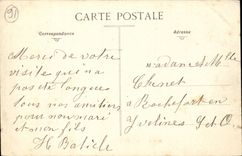 91
CARTE POSTALE
Correspondance
Adresse
Merci de votre
visite qui n'a
pas été longue
tous nos amitiés
pour nou mari
et mon fils
H Baticle
Madame et Mlle
Chenet
a Rochefort en
Yvelines S et O